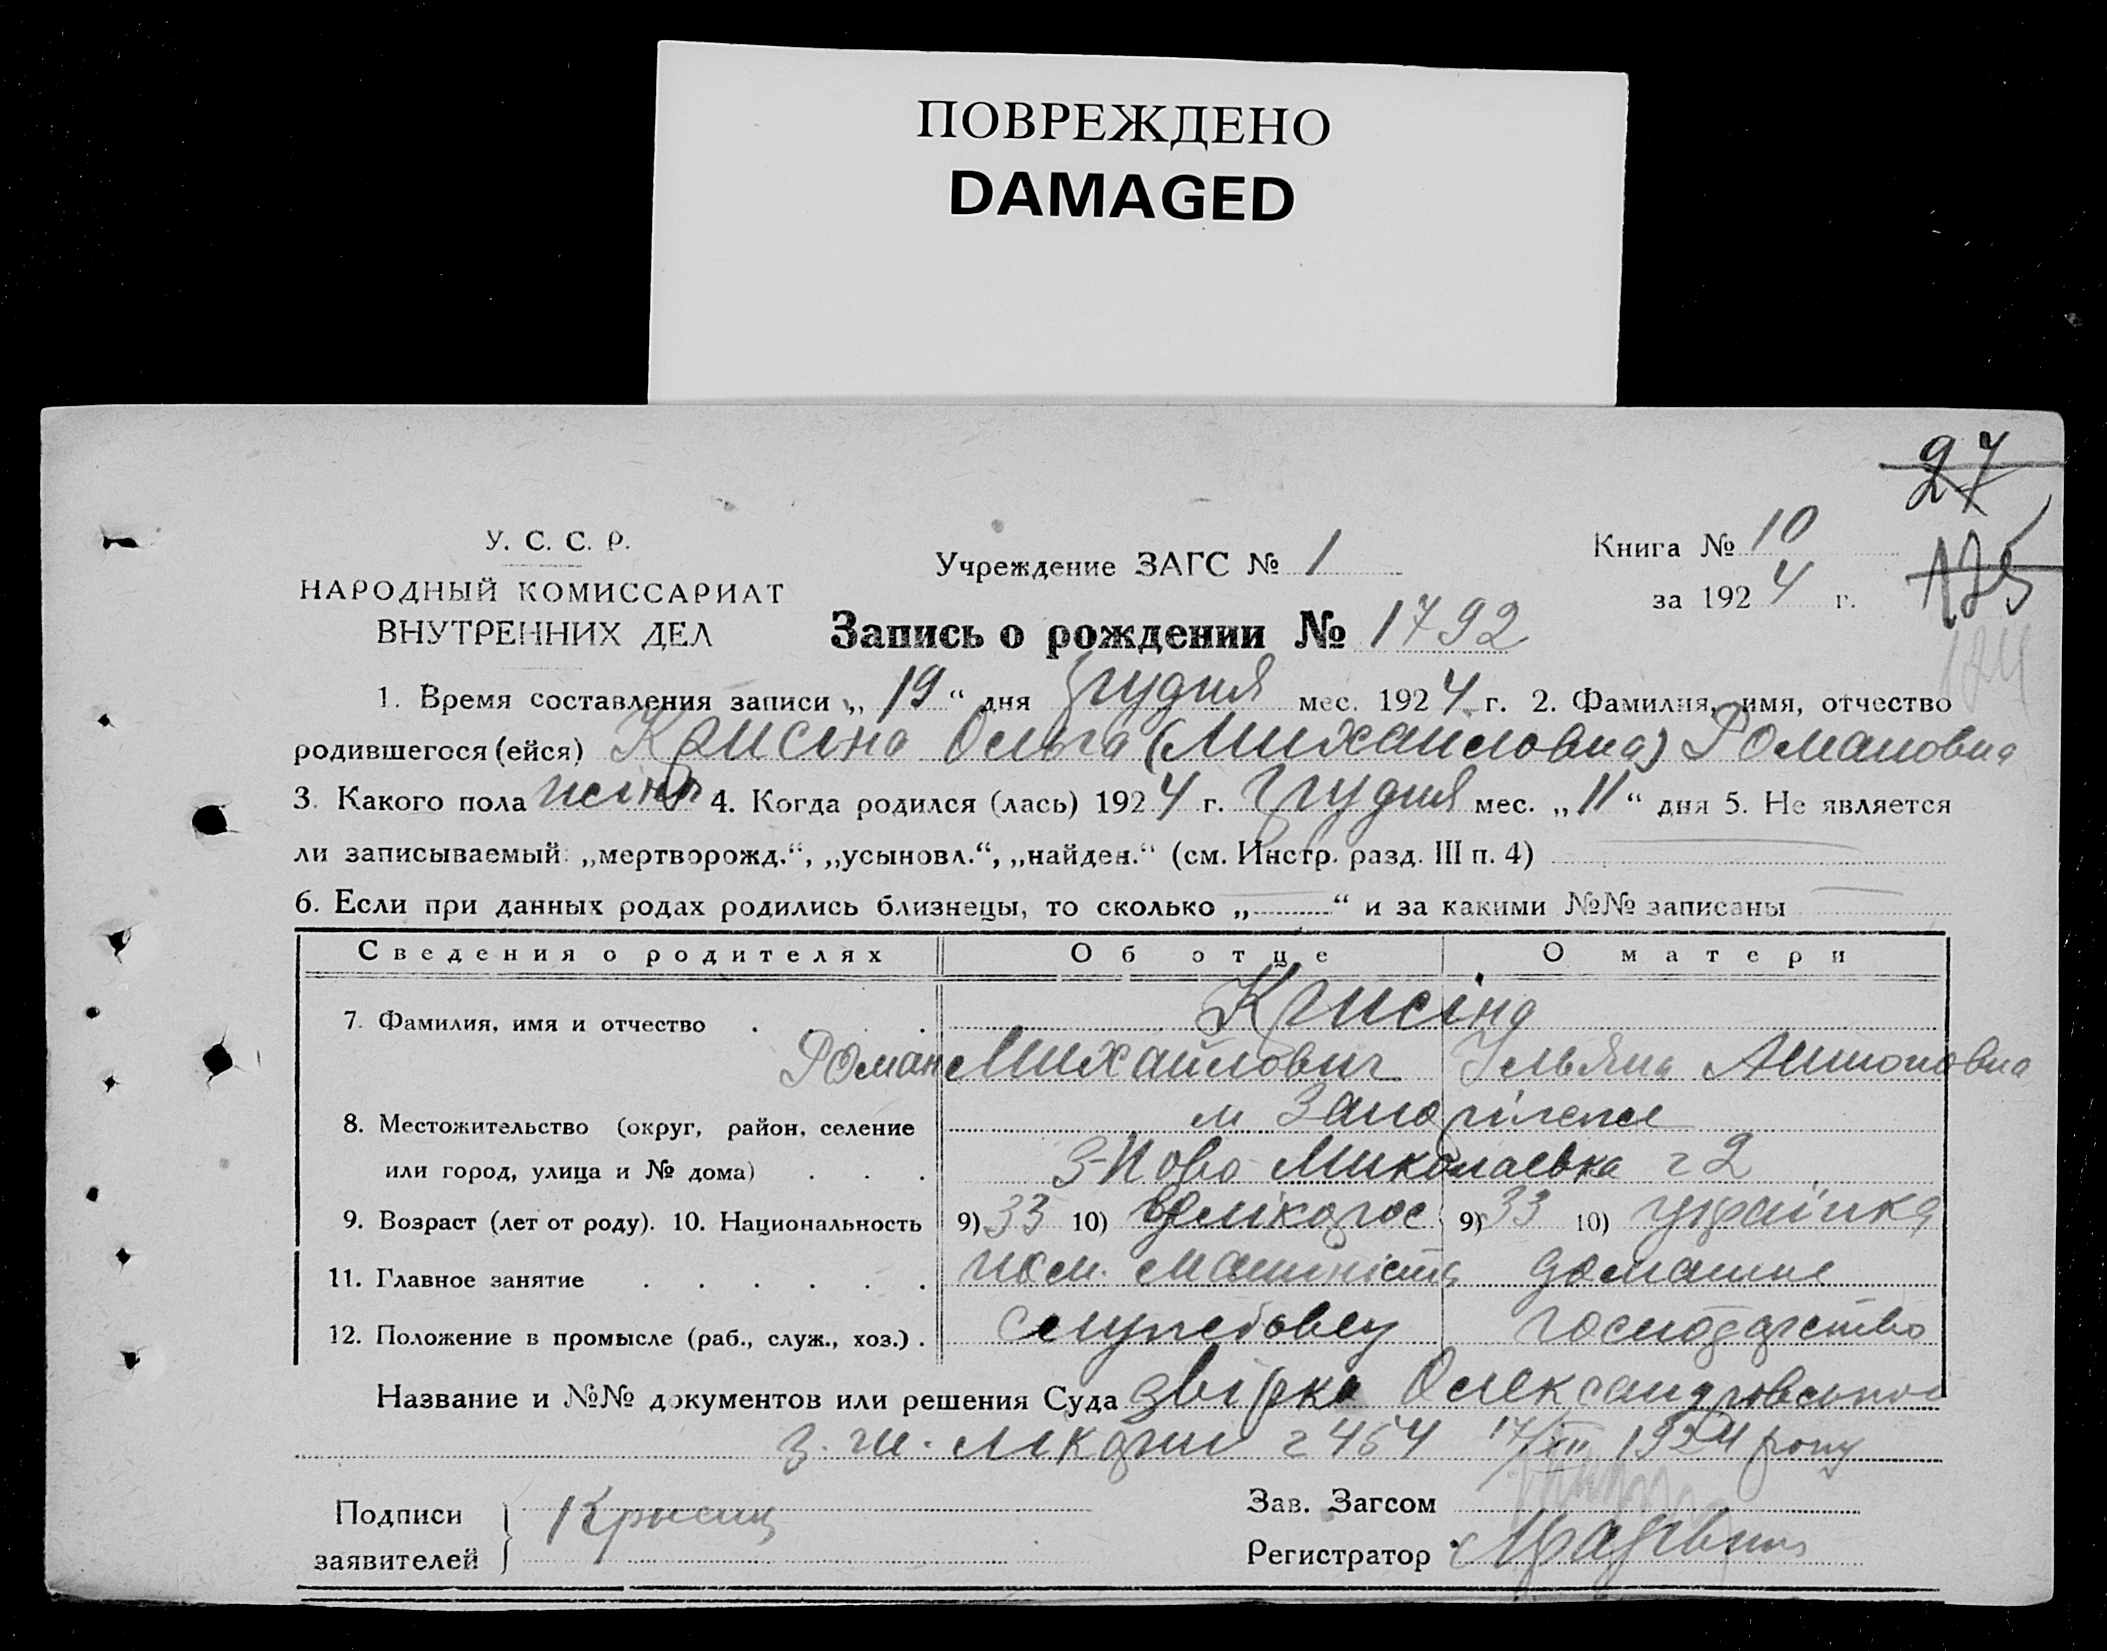 ПОВРЕЖДЕНО
DAMAGED
27
У. С. С. Р.
НАРОДНЫЙ КОМИССАРИАТ
ВНУТРЕННИХ ДЕЛ
Учреждение ЗАГС № 1
Книга № 10
за 1924 г.
125
124
Запись о рождении № 1792
1. Время составления записи „19“ дня грудня мес. 1924 г. 2. Фамилия, имя, отчество
родившегося (ейся) Крисіна Ольга (Михайловна) Романовна
3. Какого пола жіноч 4. Когда родился (лась) 1924 г. грудня мес. „11“ дня 5. Не является
ли записываемый: „мертворожд.“, „усыновл.“, „найден.“ (см. Инстр. разд. III п. 4)
6. Если при данных родах родились близнецы, то сколько „ “ и за какими №№ записаны
Сведения о родителях Об отце О матери
7. Фамилия, имя и отчество Крисіна
Роман Михайлович Ульяна Антоновна
8. Местожительство (округ, район, селение м Запоріжжя
или город, улица и № дома) З-Ново-Миколаевка 2
9. Возраст (лет от роду). 10. Национальность 9) 33 10) велікорос 9) 33 10) українка
11. Главное занятие пом. машиніста домашне
12. Положение в промысле (раб., служ., хоз.) службовец господарство
Название и №№ документов или решения Суда звірка Олександровської
з. ж. лікарні 454 17/XII 1924 року
Подписи
заявителей
Крысин
Зав. Загсом
Регистратор